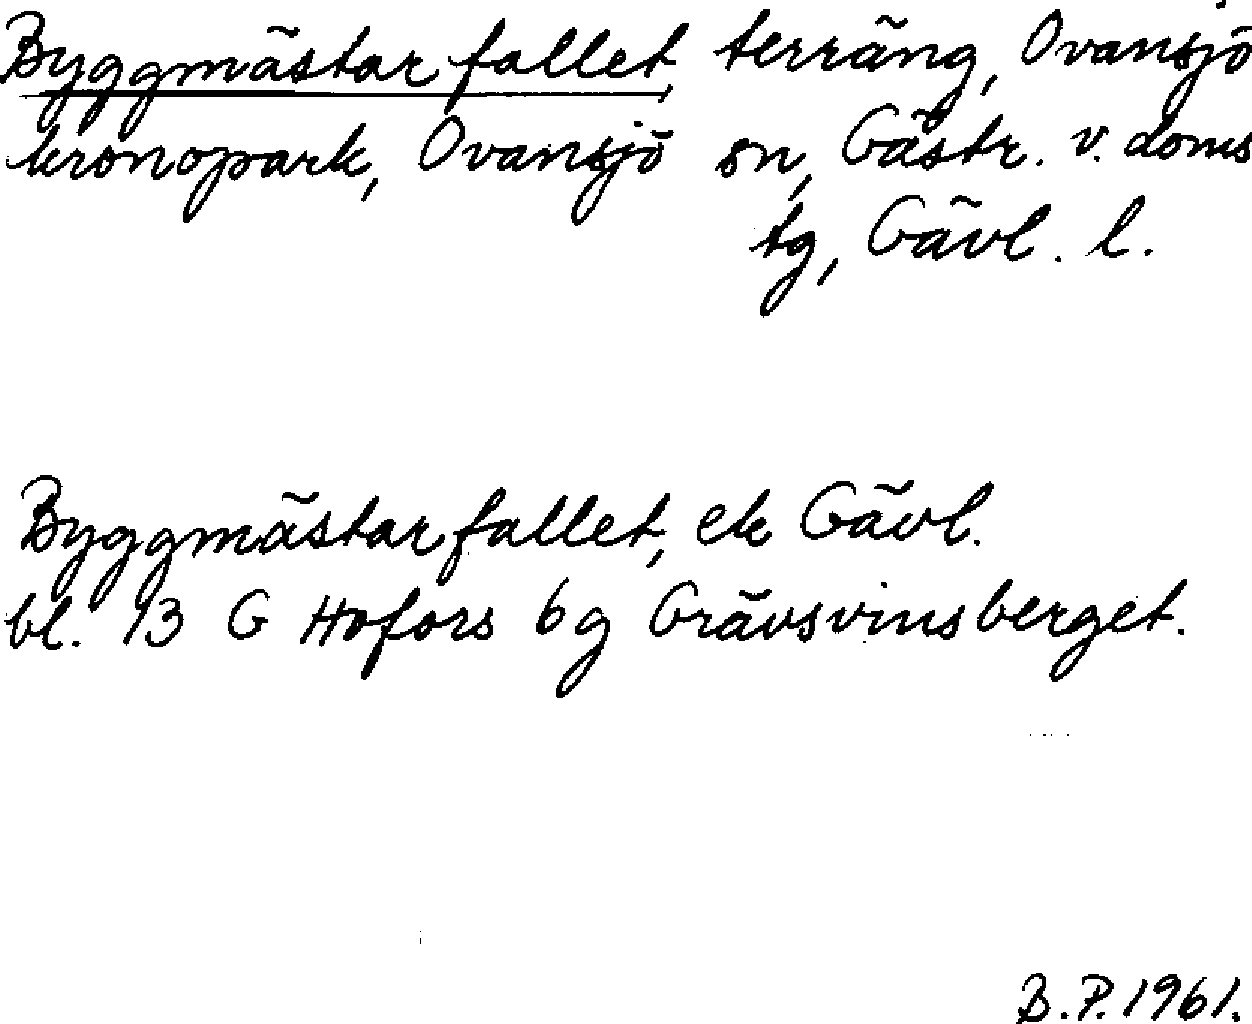 Byggmästarfallet, terräng, Ovansjö
kronopark, Ovansjö sn, Gästr. v. doms
tg, Gävl. l.
Byggmästarfallet, ek Gävl.
bl. 13 G Hofors 6g Grävsvinsberget.
B.P. 1961.